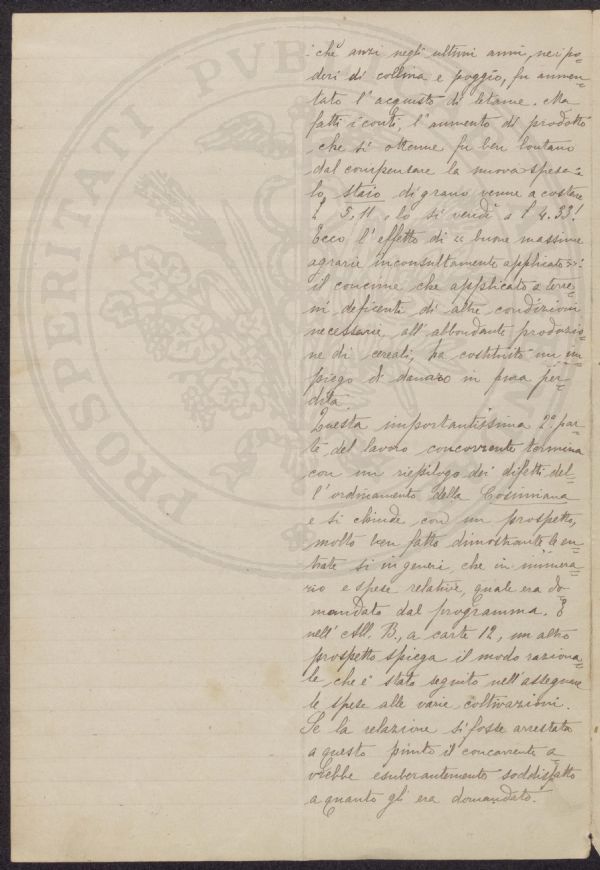 PROSPERITATI PVB
: chè anzi negli ultimi anni, nei po=
deri di collina e poggio, fu aumen=
tato l'acquisto di letame. Ma
fatti i conti, l'aumento di prodotto
che si ottenne fu ben lontano
dal compensare la nuova spesa:
lo staio di grano venne a costare
£ 5,11, e lo si vendè a £ 4.33!
Ecco l'effetto di « buone massime
agrarie inconsultamente applicate »!
il concime che applicato a terre=
ni deficenti di altre condizioni
necessarie all'abbondante produzio=
ne di cereali, ha costituito un im=
piego di danaro in pura per=
dita.
Questa importantissima 2ª par=
te del lavoro concorrente termina
con un riepilogo dei difetti del=
l'ordinamento della Cosimiana
e si chiude con un prospetto,
molto ben fatto dimostrante le en=
trate si in generi, che in numera=
rio e spese relative, quale era do=
mandato dal programma. E
nell'All. B., a carte 12, un altro
prospetto spiega il modo raziona=
le che è stato seguito nell'assegnare
le spese alle varie coltivazioni.
Se la relazione si fosse arrestata
a questo punto il concorrente a=
vrebbe esuberantemente soddisfatto
a quanto gli era domandato.